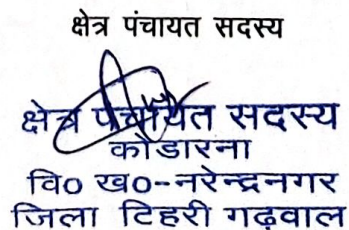 क्षेत्र पंचायत सदस्य
क्षेत्र पंचायत सदस्य
कोडारना
वि० ख०-नरेन्द्रनगर
जिला टिहरी गढ़वाल